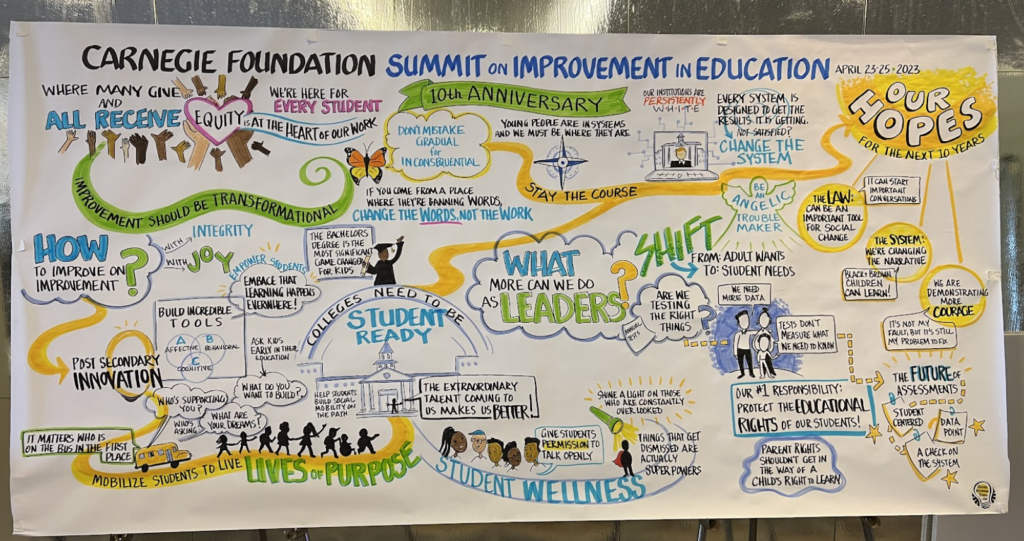 CARNEGIE FOUNDATION SUMMIT ON IMPROVEMENT IN EDUCATION APRIL 23-25 • 2023
WHERE MANY GIVE
AND
ALL RECEIVE
WE'RE HERE FOR
EVERY STUDENT
EQUITY IS AT THE HEART OF OUR WORK
IMPROVEMENT SHOULD BE TRANSFORMATIONAL
10TH ANNIVERSARY
DON'T MISTAKE
GRADUAL
FOR
INCONSEQUENTIAL
YOUNG PEOPLE ARE IN SYSTEMS
AND WE MUST BE WHERE THEY ARE.
STAY THE COURSE
IF YOU COME FROM A PLACE
WHERE THEY'RE BANNING WORDS,
CHANGE THE WORDS, NOT THE WORK
OUR INSTITUTIONS ARE
PERSISTENTLY
WHITE
EVERY SYSTEM IS
DESIGNED TO GET THE
RESULTS IT IS GETTING.
NOT SATISFIED?
CHANGE THE
SYSTEM
OUR
HOPES
FOR THE NEXT 10 YEARS
BE AN
ANGELIC
TROUBLE
MAKER
THE LAW:
CAN BE AN
IMPORTANT TOOL
FOR SOCIAL
CHANGE
IT CAN START
IMPORTANT
CONVERSATIONS
THE SYSTEM:
WE'RE CHANGING
THE NARRATIVE
BLACK & BROWN
CHILDREN
CAN LEARN!
WE ARE
DEMONSTRATING
MORE
COURAGE
IT'S NOT MY
FAULT, BUT IT'S STILL
MY PROBLEM TO FIX
HOW
TO IMPROVE ON
IMPROVEMENT?
WITH INTEGRITY
WITH JOY
EMPOWER STUDENTS
EMBRACE THAT
LEARNING HAPPENS
EVERYWHERE!
THE BACHELORS
DEGREE IS THE
MOST SIGNIFICANT
GAME CHANGER
FOR KIDS
COLLEGES NEED TO BE
STUDENT
READY
WHAT
MORE CAN WE DO
AS LEADERS?
SHIFT
FROM: ADULT WANTS
TO: STUDENT NEEDS
ARE WE
TESTING
THE RIGHT
THINGS?
WE NEED
MORE DATA
TESTS DON'T
MEASURE WHAT
WE NEED TO KNOW
OUR #1 RESPONSIBILITY:
PROTECT THE EDUCATIONAL
RIGHTS OF OUR STUDENTS!
PARENT RIGHTS
SHOULDN'T GET IN
THE WAY OF A
CHILD'S RIGHT TO LEARN
THE FUTURE OF
ASSESSMENTS
STUDENT
CENTERED
DATA
POINT
A CHECK ON
THE SYSTEM
POST SECONDARY
INNOVATION
BUILD INCREDIBLE
TOOLS
A
AFFECTIVE
B
BEHAVIORAL
C
COGNITIVE
ASK KIDS
EARLY IN THEIR
EDUCATION
WHAT DO YOU
WANT TO BUILD?
WHO'S SUPPORTING
YOU?
WHO'S
ASKING
WHAT ARE
YOUR DREAMS?
HELP STUDENTS
BUILD SOCIAL
MOBILITY ON
THE PATH
THE EXTRAORDINARY
TALENT COMING TO
US MAKES US BETTER!
IT MATTERS WHO IS
ON THE BUS IN THE FIRST
PLACE
MOBILIZE STUDENTS TO LIVE LIVES OF PURPOSE
GIVE STUDENTS
PERMISSION TO
TALK OPENLY
STUDENT WELLNESS
SHINE A LIGHT ON THOSE
WHO ARE CONSTANTLY
OVERLOOKED
THINGS THAT GET
DISMISSED ARE
ACTUALLY
SUPER POWERS